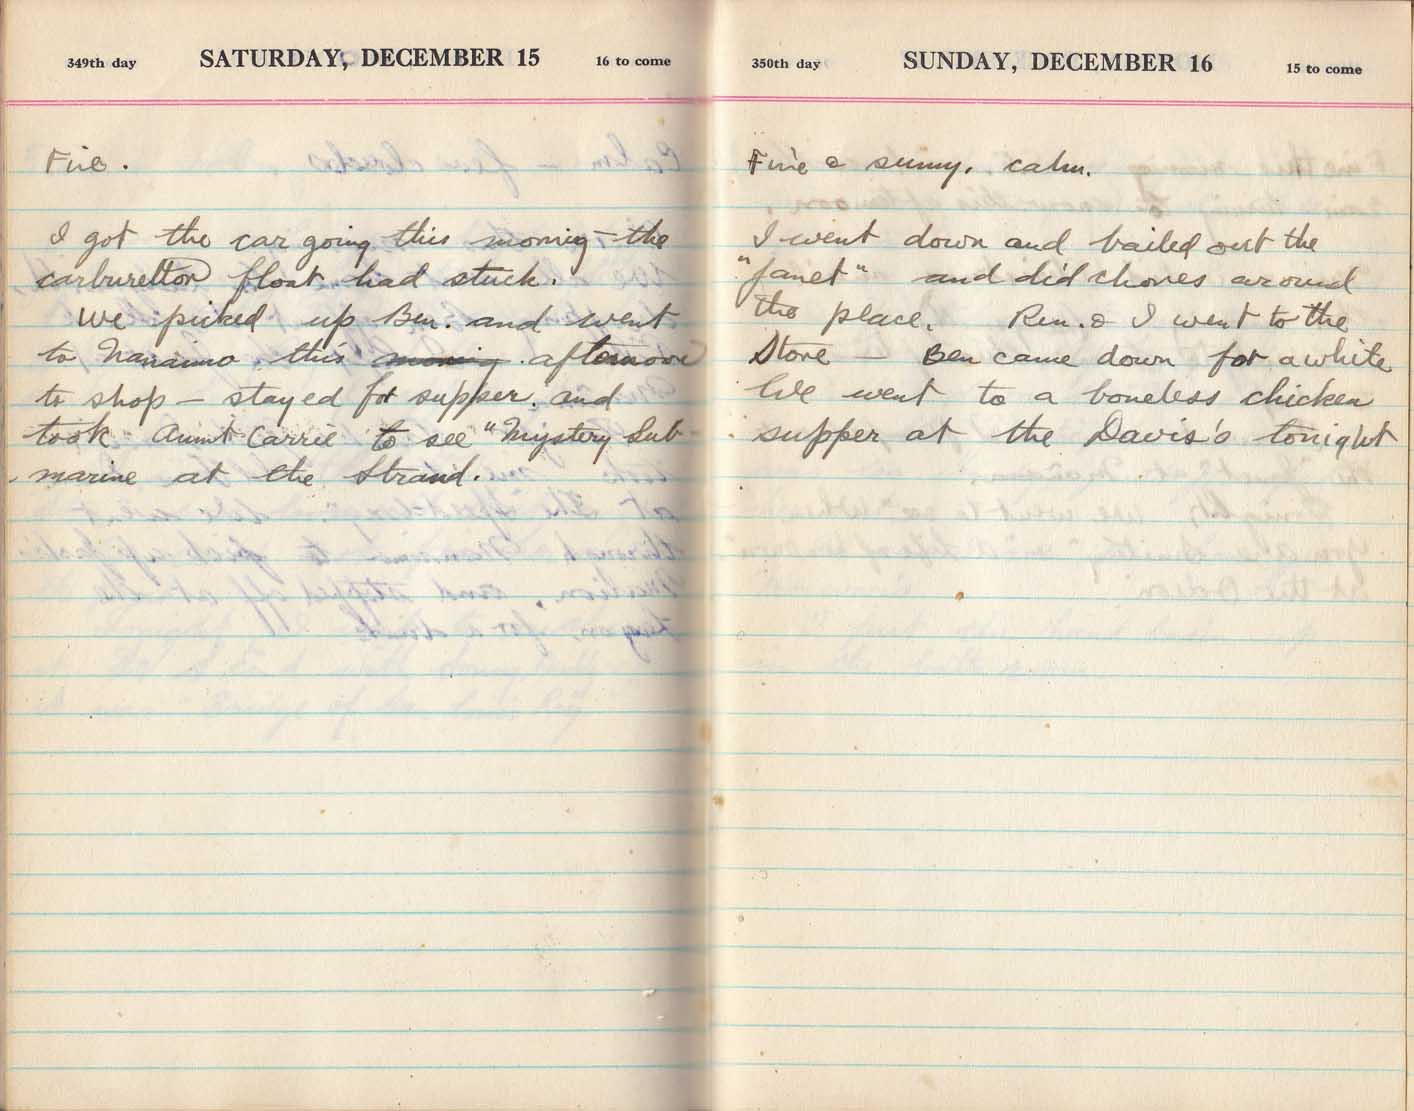 349th day SATURDAY, DECEMBER 15 16 to come
Fine.
I got the car going this morning – the
carburettor float had stuck.
We picked up Ben. and went
to Nanaimo this morning afternoon
to shop – stayed for supper. and
took Aunt Carrie to see "Mystery Sub-
marine at the Strand.
350th day SUNDAY, DECEMBER 16 15 to come
Fine & sunny. calm.
I went down and bailed out the
"Janet" and did chores around
the place. Ren. & I went to the
Store – Ben came down for a while
We went to a boneless chicken
supper at the Davis's tonight